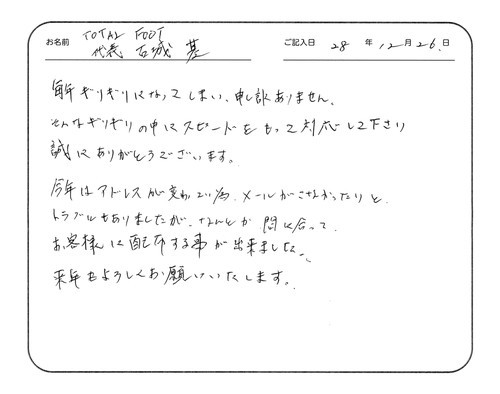 お名前 TOTAL FOOT
代表 古城 基
ご記入日 28 年 12 月 26 日
毎年ギリギリになってしまい、申し訳ありません。
そんなギリギリの中にスピードをもって対応して下さり
誠にありがとうございます。
今年はアドレスが変わっている為、メールがさなかったりと、
トラブルもありましたが、なんとか間に合って、
お客様に配布する事が出来ました。
来年もよろしくお願いいたします。